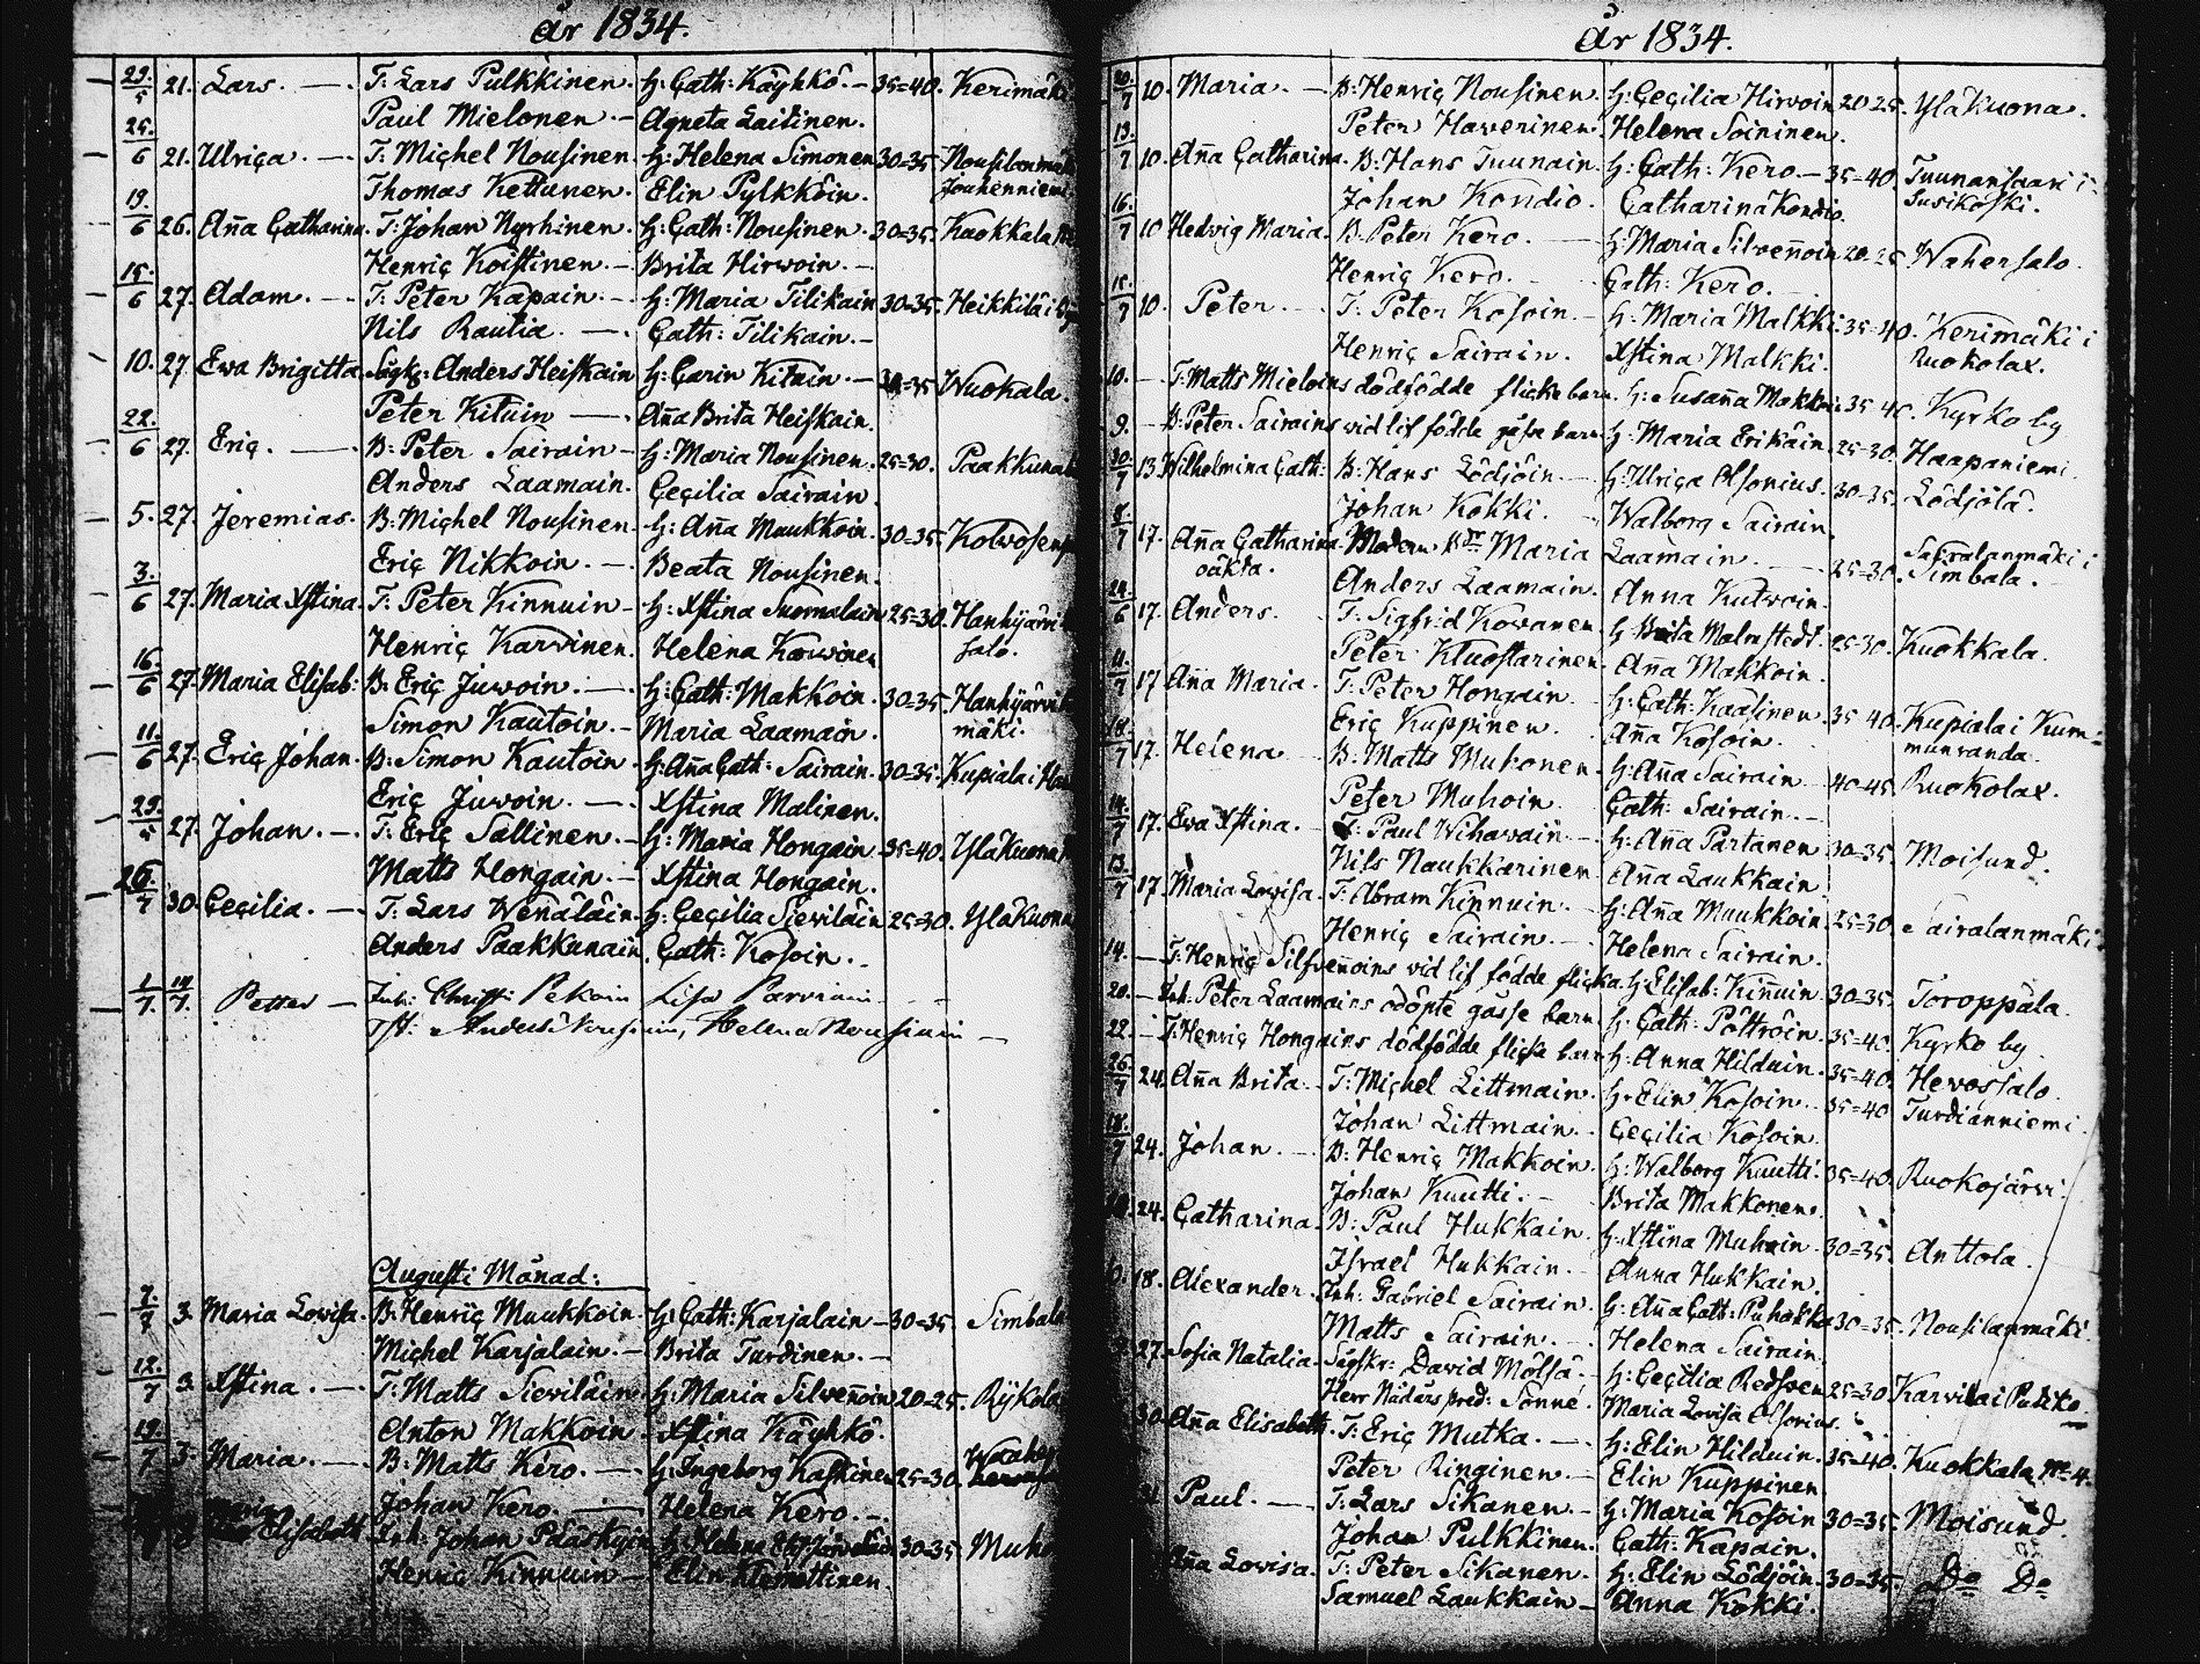 år 1834.
29/5 21. Lars. — T: Lars Pulkkinen. H: Cath: Käyhkö. — 35=40. Kerimäki
Paul Mielonen. — Agneta Laitinen.
25/6 21. Ulrica. — T: Michel Nousinen. H: Helena Simonen 30=35.
Thomas Kettunen. Elin Pylkköin. Jouhenniemi
19/6 26. Aña Catharina. T: Johan Nyrhinen. H: Cath: Nousinen. 30=35. Kaokkala
Henric Koistinen. — Brita Hirwoin. —
15/6 27. Adam. — T: Peter Kapain. — H: Maria Tilikain 30=35. Heikkilä i
Nils Rautia. — Cath: Tilikain. —
10. 27. Ewa Brigitta. Anders Heiskain H: Carin Kituin. — 35 Wuokala.
Peter Kituin — Aña Brita Heiskain.
22/6 27. Eric. — B: Peter Sairain — H: Maria Nousinen. 25=30.
Anders Laamain. Cecilia Sairain.
5. 27. Jeremias. B: Michel Nousinen. H: Aña Muukkoin. 30=35.
Eric Nikkoin. — Beata Nousinen.
3/6 27. Maria Xstina. T: Peter Kinnuin — H: Xstina Suomalain 25=30.
Henric Karvinen. Helena Karvinen salo.
16/6 27. Maria Elisab: B: Eric Juwoin. — H: Cath: Makkoin. 30=35.
Simon Kautoin. — Maria Laamain. mäki.
11/6 27. Eric Johan. B: Simon Kautoin. H: Aña Cath: Sairain. 30=35. Kupiala i
Eric Juwoin. — Xstina Malinen.
29/5 27. Johan. — T: Eric Sallinen. — H: Maria Hongain. 35=40. Yläkuona
Matts Hongain. — Xstina Hongain.
26/7 30. Cecilia. — T: Lars Wenäläin. H: Cecilia Siewiläin 25=30. Yläkuona
Anders Paakkunain. Cath: Kosoin. —
1/7. 14/7. Petter — Inh: Christ: Pekoin Lisa Parviain
Helena
Augusti Månad:
7/7 3. Maria Lovisa. B: Henric Muukkoin. H: Cath: Karjalain — 30=35. Simbala
Michel Karjalain. — Brita Turdinen. —
12/7 3. Xstina. — T: Matts Siewiläin. H: Maria Silveñoin 20=25. Rykola
Anton Makkoin. Xstina Käyhkö.
19/7 3. Maria. — B: Matts Kero. — H: Ingeborg Kastinen 25=30.
Johan Kero. — Helena Kero. —
Elisabeth Inh: Johan Pääskyin H: Helena 30=35.
Henric Kinnuin — Elin Klemettinen.
År 1834.
20/7 10. Maria. — B: Henric Nousinen. H: Cecilia Hirwoin 20 25. Yläkuona.
Peter Haverinen. Helena Soininen.
13/7 10. Aña Catharina. B: Hans Tuunain. H: Cath: Kero. — 35=40. Tuunansaari i
Johan Kondio. Catharina Kondio. Susikoski.
16/7 10 Hedvig Maria. B: Peter Kero. — H: Maria Silveñoin 20=25 Wahersalo.
Henric Kero. Cath: Kero.
15/7 10. Peter. — T: Peter Kosoin. — H: Maria Malkki. 35=40. Kerimäki i
Henric Sairain. Xstina Malkki. Ruokolax.
10. — T: Matts Mieloins dödfödde flicke barn. H: Susaña Makkoin 35 40. Kyrko by
9. — B: Peter Sairains vid lif födde gåsse barn H: Maria Erikäin. 25=30. Haapaniemi
30/7 13 Wilhelmina Cath: B: Hans Lödjöin. — H: Ulrica Olsonius. 30=35. Lödjölä.
Johan Kokki. — Walborg Sairain.
8/7 17. Aña Catharina. Modren Maria Laamain. — 25=30. Sairalanmäki i
oäkta. Anders Laamain. Anna Kutwoin. Simbala.
24/6 17. Anders. T: Sigfrid Kovanen. H: Brita Malmstedt. 25=30. Kuokkala.
Peter Kluostarinen. Aña Makkoin.
11/7 17 Aña Maria. T: Peter Hongain. H: Cath: Kaasinen. 35 40. Kupiala i Kum=
Eric Kuppinen. Aña Kosoin. munranda.
18/7 17. Helena B: Matts Muhonen. H: Aña Sairain 40=45. Ruokolax.
Peter Muhoin. Cath: Sairain. —
14/7 17. Ewa Xstina. — T: Paul Wihavain — H: Aña Partanen 30=35. Moisund.
Nils Naukkarinen. Aña Laukkain
13/7 17. Maria Lovisa. T: Abram Kinnuin. — H: Aña Muukkoin. 25=30. Sairalanmäki
Henric Sairain. — Helena Sairain.
14. — T: Henric Silfveñoins vid lif födde flicka. H: Elisab: Kiñuin. 30=35. Toroppala.
20. — Inh: Peter Laamains odöpte gåsse barn H: Cath: Pöttröin. 35=40. Kyrko by.
22. — T: Henric Hongains dödfödde flicke barn H: Anna Hilduin. 35=40. Hevossalo.
26/7 24. Aña Brita. — T: Michel Littmain. H: Elin Kosoin. 35=40. Turdianniemi.
Johan Littmain. Cecilia Kosoin.
18/7 24. Johan. — B: Henric Makkoin. H: Walborg Kuutti. 35=40. Ruokojärvi.
Johan Kuutti. — Brita Makkonen.
24. Catharina. B: Paul Hukkain. H: Xstina Muhoin. 30=35. Anttola.
Israel Hukkain. — Anna Hukkain.
18. Alexander. Inh: Gabriel Sairain. H: Aña Cath: Puhakka 30=35. Nousilanmäki.
Matts Sairain. — Helena Sairain.
27. Sofia Natalia. David Mölsä. — H: Cecilia Redsven 25=30. Karvila i
Herr pred: Sonné. Maria Lovisa Olsonius.
30. Aña Elisabeth. T: Eric Mutka. — H: Elin Hilduin. 35=40. Kuokkala № 4.
Peter Ringinen. — Elin Kuppinen.
Paul. — T: Lars Sikanen. — H: Maria Kosoin 30=35. Moisund.
Johan Pulkkinen. Cath: Kapain.
Aña Lovisa. T: Peter Sikanen. H: Elin Lödjöin. 30=35. Do Do
Samuel Laukkain — Anna Kokki.